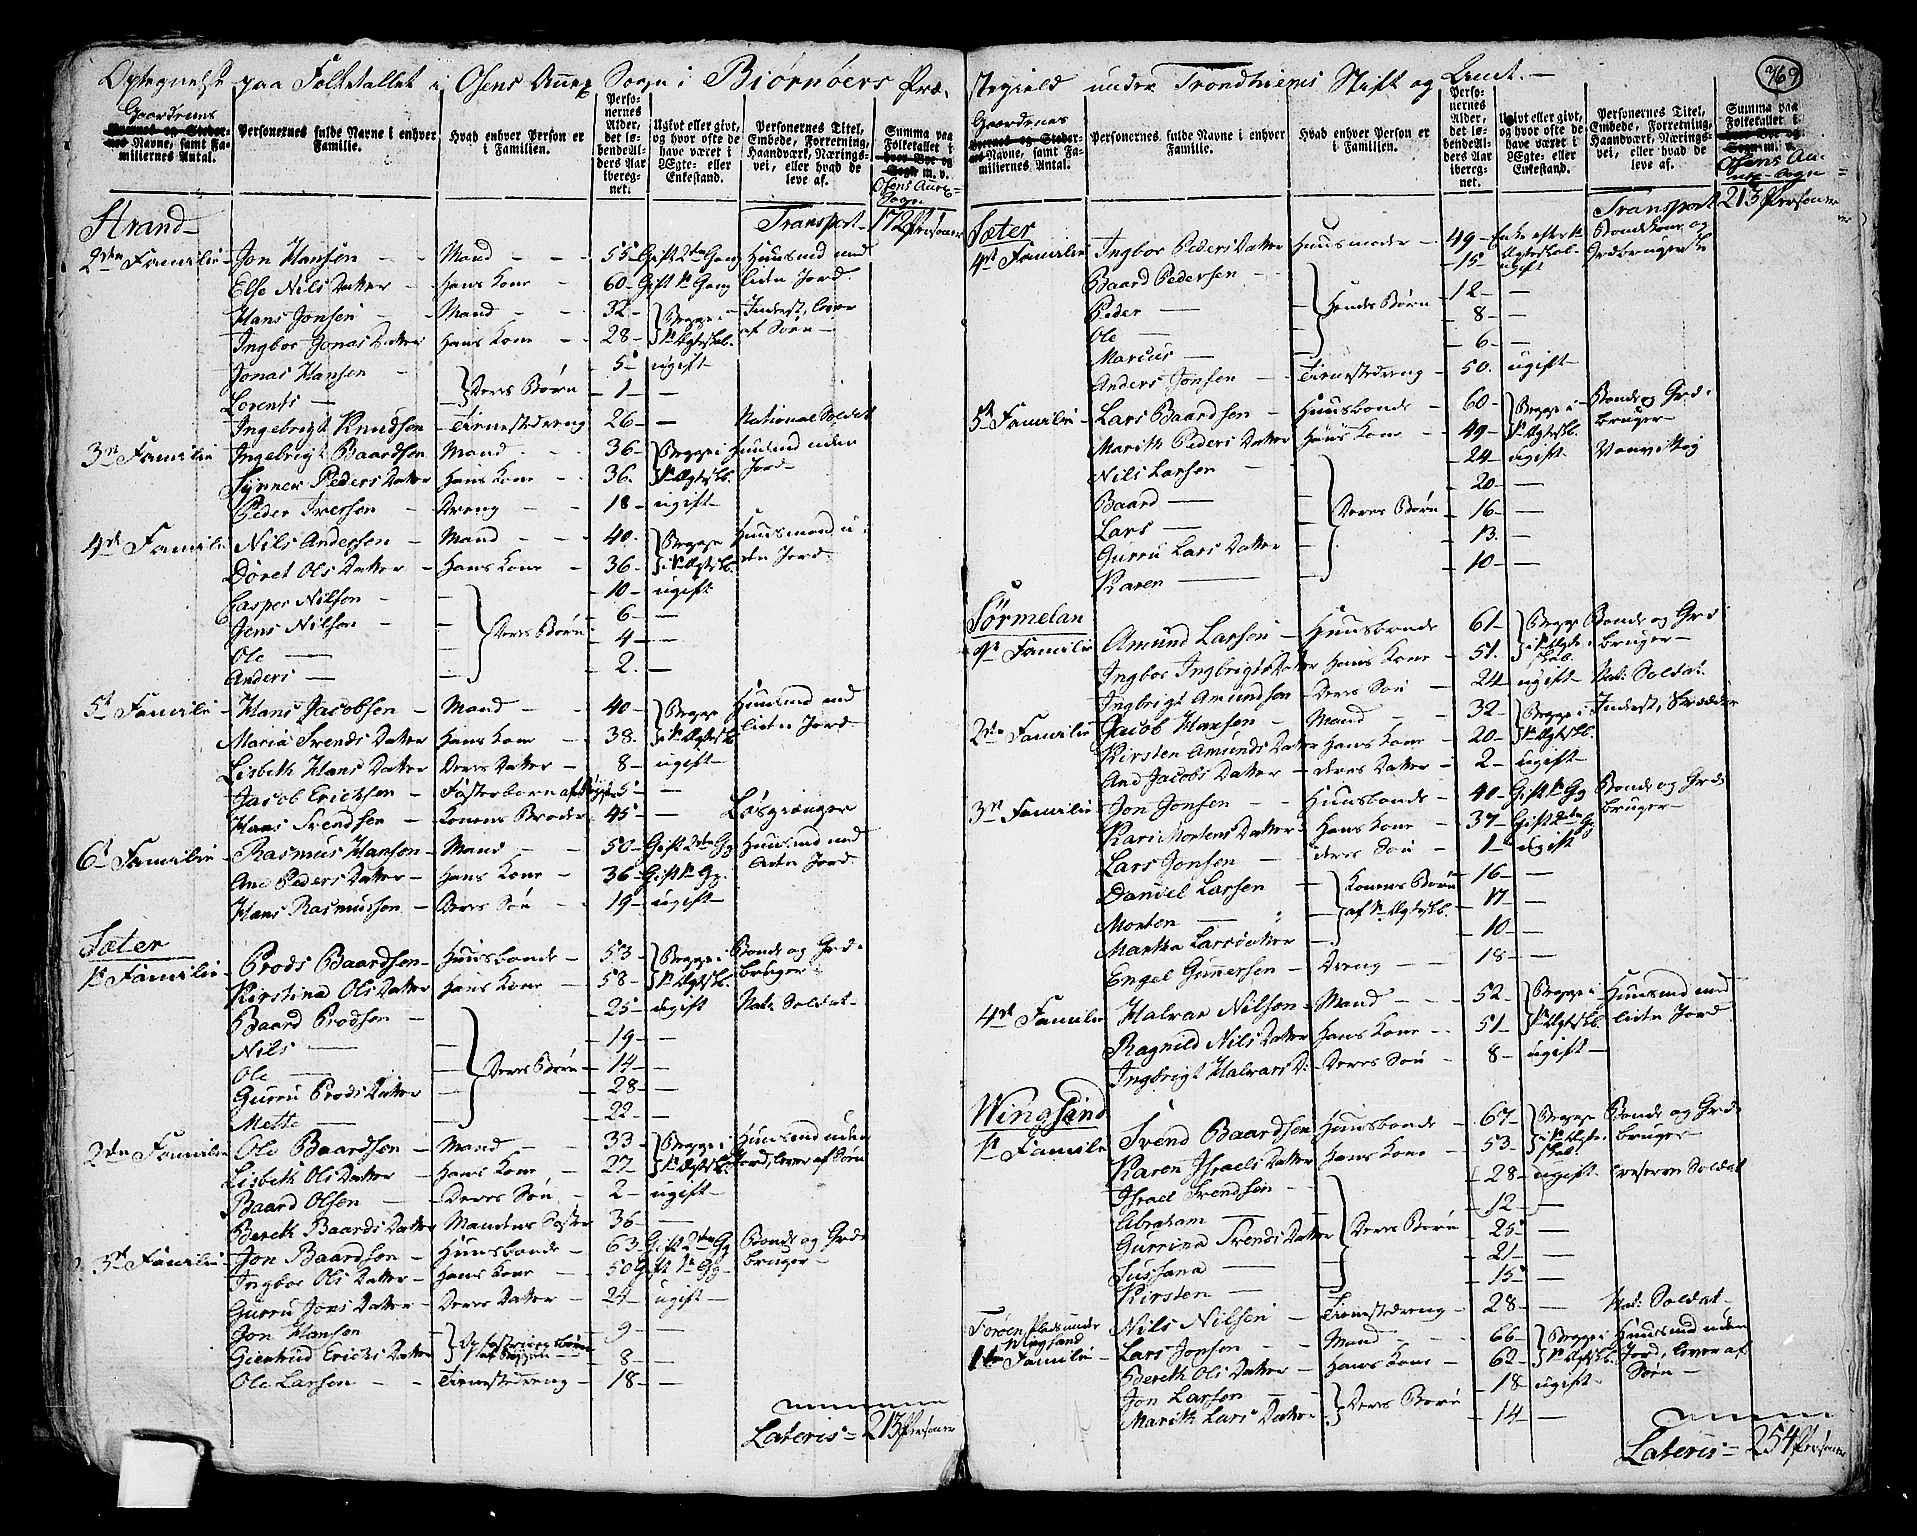 Optegnelse paa Folketallet i Osens Annex Sogn i Biørnøers Præ-
Gaardenes
Navne, samt Familiernes Antal.
Personernes fulde Navne i enhver Familie.
Hvad enhver Person er i Familien.
Personernes Alder, det løbendeAlders Aar iberegnet.
Ugivt eller givt, og hvor ofte de have været i Ægte- eller Enkestand.
Personernes Titel, Embede, Forretning, Haandværk, Næringsvei, eller hvad de leve af.
Summa paa Folketallet i
Osens Annex Sogn
Transport 172 Personer
Strand
2den Familie Jon Hansen Mand 55 Gift 2den Gang Huusmd med
Else Nils Datter hans Kone 60 Gift 1te Gang liden Jord
Hans Jonsen Mand 32 Begge i Inderst, lever
Ingbor Jonas Datter hans Kone 28 1te Ægteskab af Søen
Jonas Hansen Deres Børn 5 ugift
Lorents 1 —
Ingebrigt Knudsen Tienestedreng 26 — National Soldat
3de Familie Ingebrigt Baardsen Mand 36 Begge i Huusmd uden
Synnev Peders Datter hans Kone 36 1te Ægteskb. Jord
Peder Iversen Dreng 18 ugift
4de Familie Nils Andersen Mand 40 Begge Huusmand u-
Døret Ols Datter hans Kone 36 i 1te Ægteskb. den Jord
Casper Nilsen 10 ugift
Jens Nilsen Deres Børn 6 —
Ole 4 —
Anders 2 —
5te Familie Hans Jacobsen Mand 40 Begge Huusmd med
Maria Svends Datter hans Kone 38 i 1te Ægteskb liden Jord
Lisbeth Hans Datter Deres Datter 8 ugift
Jacob Ericksen Fosterbarn af 5 —
Hans Svendsen Konens Broder 45 — Løsgiænger
6te Familie Rasmus Hansen Mand 50 Gift 2den Gg Huusmd med
Ane Peders Datter hans Kone 36 Gift 1te Gg. liden Jord
Hans Rasmussen Deres Søn 19 ugift
Sæter
1te Familie Prods Baardsen Huusbonde 53 Begge i Bonde og Grd-
Kirstina Ols Datter hans Kone 58 1te Ægteskb. bruger
Baard Prodsen 25 ugift Nat: Soldat
Nils 19 —
Ole Deres Børn 14 —
Gurru Prods Datter 28 —
Mette 22 —
2den Familie Ole Baardsen Mand 33 Begge i Huusmd uden
Lisbeth Ols Datter hans Kone 27 1te Ægteskb. Jord, lever af Søen
Baard Olsen Deres Søn 2 ugift
Bereth Baards Datter Mandens Søster 36 —
3de Familie Jon Baardsen Huusbonde 63 Gift 2den Gg Bonde og Grd-
Ingbor Ols Datter hans Kone 50 Gift 1te Gg bruger
Gurru Jons Datter Deres Datter 24 ugift
Jon Hansen Opfostrings børn 9 —
Giertrud Ericks Datter 8 —
Ole Larsen Tienestedreng 18 —
Lateris = 213 Personer
769
stegield under Trondhiems Stift og Amt.
Gaardenes
Navne, samt Familiernes Antal.
Personernes fulde Navne i enhver Familie.
Hvad enhver Person er i Familien.
Personernes Alder, det løbendeAlders Aar iberegnet.
Ugivt eller givt, og hvor ofte de have været i Ægte- eller Enkestand.
Personernes Titel, Embede, Forretning, Næringsvei, eller hvad de leve af.
Summa paa Folketallet i
Osens Annex-Sogn
Transport 213 Personer
Sæter
4de Familie Ingbor Peders Datter Huusmoder 49 Enke efter 1te Ægteskab Bondekone og Jordbrugerske
Baard Pedersen 15 ugift
Peder Hendes Børn 12 —
Ole 8 —
Marcus 6 —
Anders Jonsen Tienestedreng 50 ugift
5te Familie Lars Baardsen Huusbonde 60 Begge i Bonde og Grd-
Marith Peders Datter hans Kone 49 1te Ægteskb. bruger
Nils Larsen 24 ugift Vanvittig
Baard 20 —
Lars Deres Børn 16 —
Gurru Lars Datter 13 —
Karen 10 —
Sørmelan
1te Familie Amund Larsen Huusbonde 61 Begge Bonde og Grd-
Ingbor Ingbrigts Datter hans Kone 51 i 1te Ægteskab. bruger
Ingbrigt Amundsen Deres Søn 24 ugift Nat: Soldat
2den Familie Jacob Hansen Mand 32 Begge i Inderst, Skrædder
Kirsten Amunds Datter hans Kone 20 1te Ægteskb.
Ane Jacobs Datter deres Datter 2 ugift
3de Familie Jon Jonsen Huusbonde 40 Gift 1te Gg Bonde og Grd-
Kari Mortens Datter hans Kone 37 Gift 2den G. bruger
Lars Jonsen deres Søn 1 ugift
Daniel Larsen Konens Børn 16 —
Morten af 1te Ægteskb. 17 —
Martha Larsdatter 10 —
Engel Gunnersen Dreng 18 —
4de Familie Halvar Nilsen Mand 52 Begge i Huusmd med
Ragnild Nils Datter hans Kone 51 1te Ægteskb. liden Jord
Ingbrigt Halvars D: Deres Søn 8 ugift
Wingsand
1te Familie Svend Baardsen Huusbonde 67 Begge Bonde og Grd-
Karen Israels Datter hans Kone 53 i 1te Ægteskab. bruger
Israel Svendsen 28 ugift reserve Soldat
Abraham 12 —
Gurrina Svends Datter Deres Børn 25 —
Sussana 21 —
Kirsten 15 —
Nils Nilsen Tienestedreng 28 — Nat: Soldat
Forøen Plads under Wingsand
1te Familie Lars Jonsen Mand 66 Begge i Huusmd uden
Bereth Ols Datter hans Kone 62 1te Ægteskb. Jord, lever af
Jon Larsen Deres Børn 18 ugift Søen
Marith Lars Datter 14 —
Lateris = 254 Personer